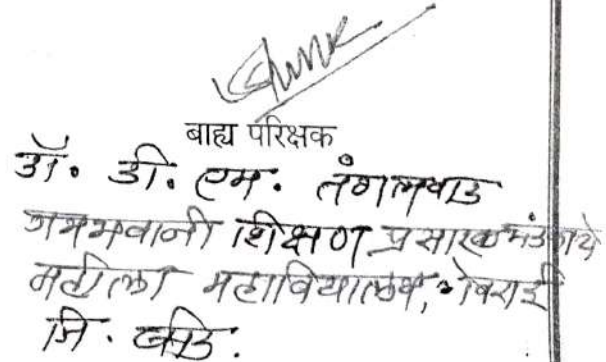 बाह्य परिक्षक
डॉ. डी. एम. तंगलवाड
जयभवानी शिक्षण प्रसारक मंडळाचे
महीला महाविद्यालय, गेवराई
जि. बीड.